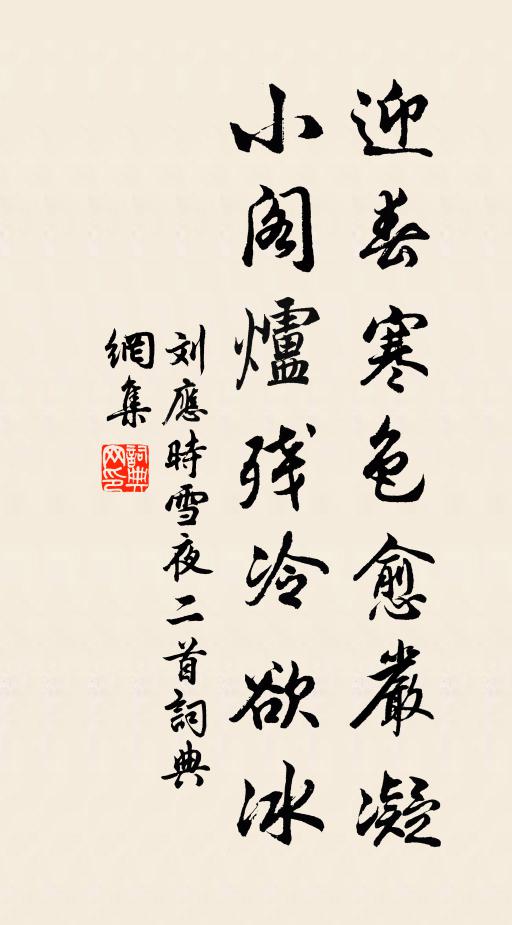 迎春寒色愈嚴凝
小阁爐残冷欲冰
刘應時雪夜二首詞典
網集
詞典网印